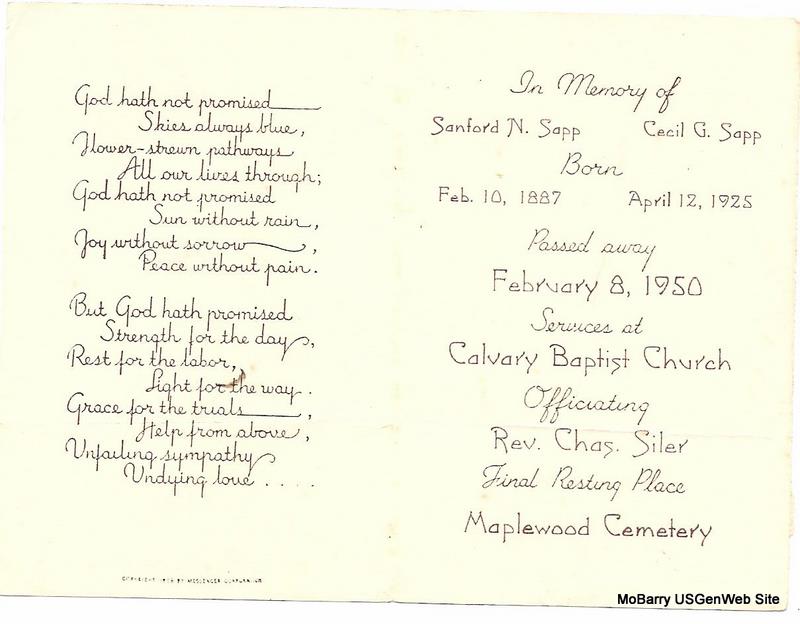 God hath not promised
Skies always blue,
Flower-strewn pathways
All our lives through;
God hath not promised
Sun without rain,
Joy without sorrow,
Peace without pain.
But God hath promised
Strength for the day,
Rest for the labor,
Light for the way.
Grace for the trials,
Help from above,
Unfailing sympathy
Undying love . . . .
COPYRIGHT BY MESSENGER CORPORATION
In Memory of
Sanford N. Sapp Cecil G. Sapp
Born
Feb. 10, 1887 April 12, 1925
Passed away
February 8, 1950
Services at
Calvary Baptist Church
Officiating
Rev. Chas. Siler
Final Resting Place
Maplewood Cemetery
MoBarry USGenWeb Site